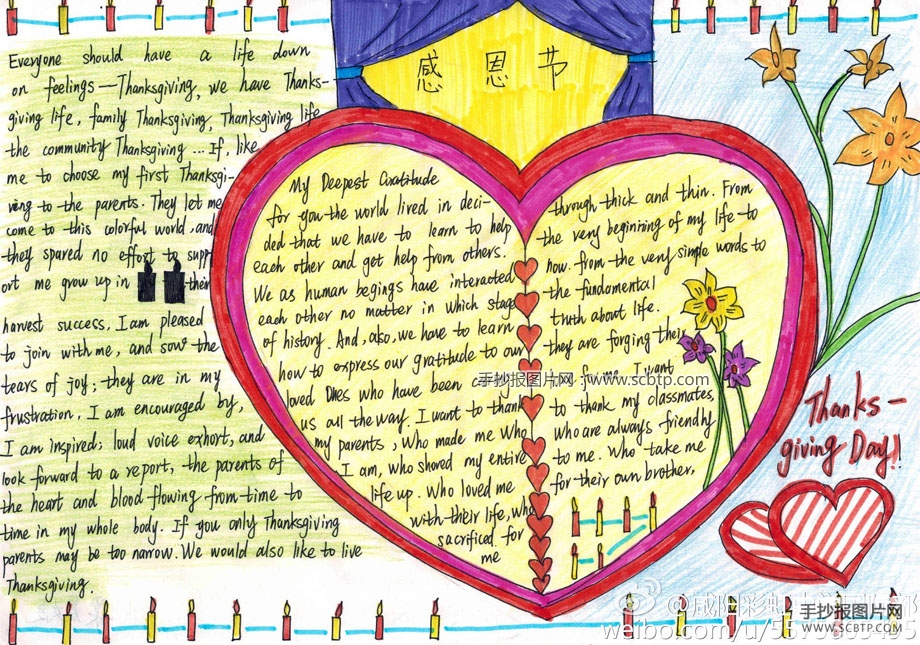 感恩节
Everyone should have a life down
on feelings—Thanksgiving, we have Thanks-
giving life, family Thanksgiving, Thanksgiving life
the community Thanksgiving ... If, like
me to choose my first Thanksgi-
ving to the parents. They let me
come to this colorful world, and
they spared no effort to supp
ort me grow up in their
harvest success, I am pleased
to join with me, and sow the
tears of joy; they are in my
frustration, I am encouraged by,
I am inspired; loud voice exhort, and
look forward to a report, the parents of
the heart and blood flowing from time to
time in my whole body. If you only Thanksgiving
parents may be too narrow. We would also like to live
Thanksgiving.
My Deepest Gratitude
for you the world lived in deci-
ded that we have to learn to help
each other and get help from others.
We as human begings have interacted
each other no matter in which stage
of history. And, also, we have to learn
how to express our gratitude to our
loved Ones who have been
us all the way. I want to thank
my parents, who made me who
I am, who shared my entire
life up. Who loved me
with their life, who
sacrificed for
me
through thick and thin. From
the very beginning of my life to
now. from the very simple words to
the fundamental
truth about life.
they are forging their
I want
to thank my classmates,
who are always friendly
to me. Who take me
for their own brother,
手抄报图片网:www.scbtp.com
Thanks-
giving Day!
手抄报图片网
WWW.SCBTP.COM